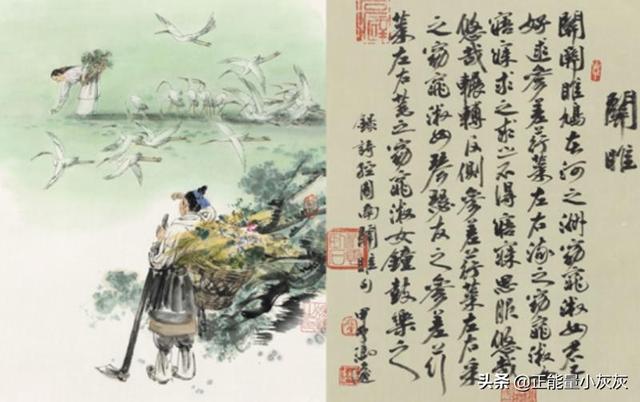 關雎
關關雎鳩在河之洲窈窕淑女君子
好逑參差荇菜左右流之窈窕淑女
寤寐求之求之不得寤寐思服悠哉
悠哉輾轉反側參差荇菜左右采
之窈窕淑女琴瑟友之參差荇
菜左右芼之窈窕淑女鐘鼓樂之
錄詩經周南關雎句 甲午
头条 @正能量小灰灰